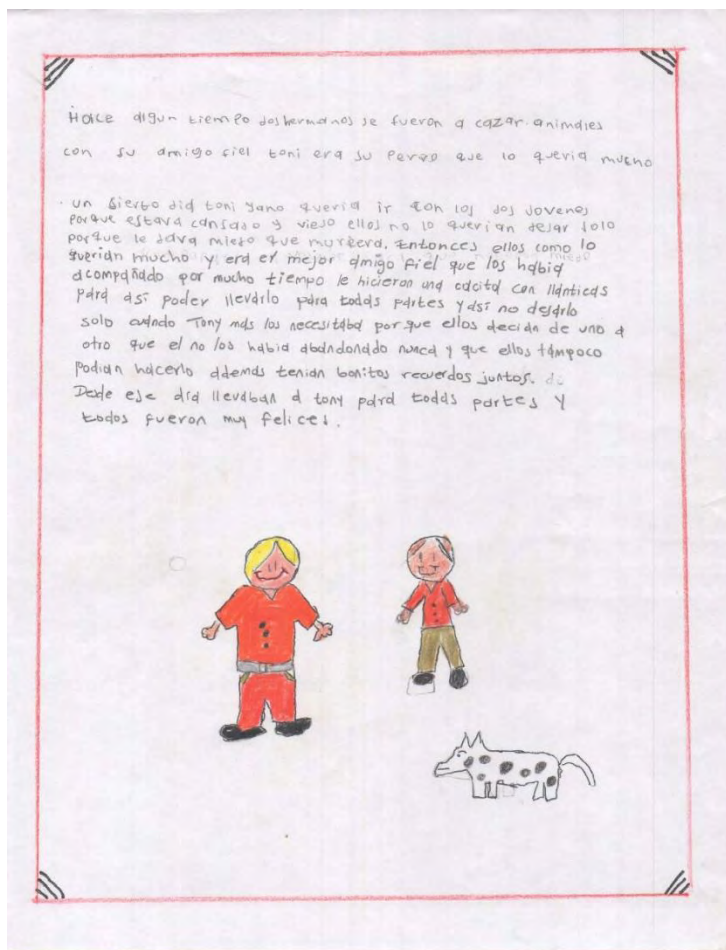 Hace algun tiempo dos hermanos se fueron a cazar animales
con su amigo fiel toni era su perro que lo queria mucho
un sierto dia toni yano queria ir con los dos jovenes
porque estava cansado y viejo ellos no lo querian dejar solo
porque le dava miedo que muriera. Entonces ellos como lo
querian mucho y era er mejor amigo fiel que los habia
acompañado por mucho tiempo le hicieron una cacita con llanticas
para asi poder llevarlo para todas partes y así no dejarlo
solo cuando Tony más los necesitaba porque ellos decian de uno a
otro que el no los habia abandonado nunca y que ellos tampoco
podian hacerlo ademas tenian bonitos recuerdos juntos.
Desde ese dia llevaban a tony para todas partes y
todos fueron muy felices.